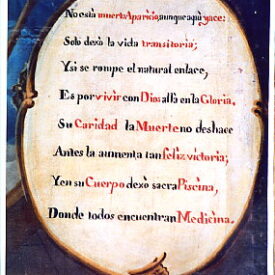 No està muerto Aparicio, aunque aquà yace:
Solo dexò la vida transitoria;
Y si se rompe el natural enlace,
Es por vivir con Dios allà en la Gloria.
Su Caridad la Muerte no deshace
Antes la aumenta tan feliz victoria;
Y en su Cuerpo dexò sacra Piscina,
Donde todos encuentran Medicina.